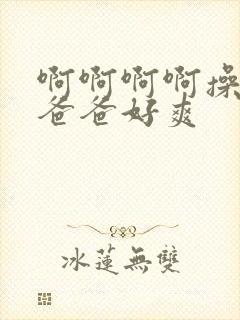 啊啊啊啊操
爸爸好爽
冰蓮無雙